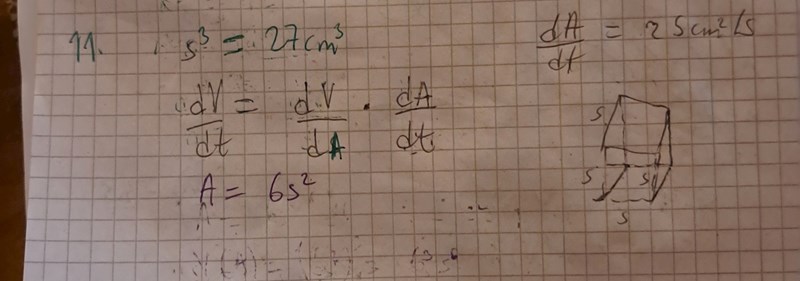 11. s³ = 27cm³
dA/dt = 25cm²/s
dV/dt = dV/dA · dA/dt
A = 6s²
s
s
s
s